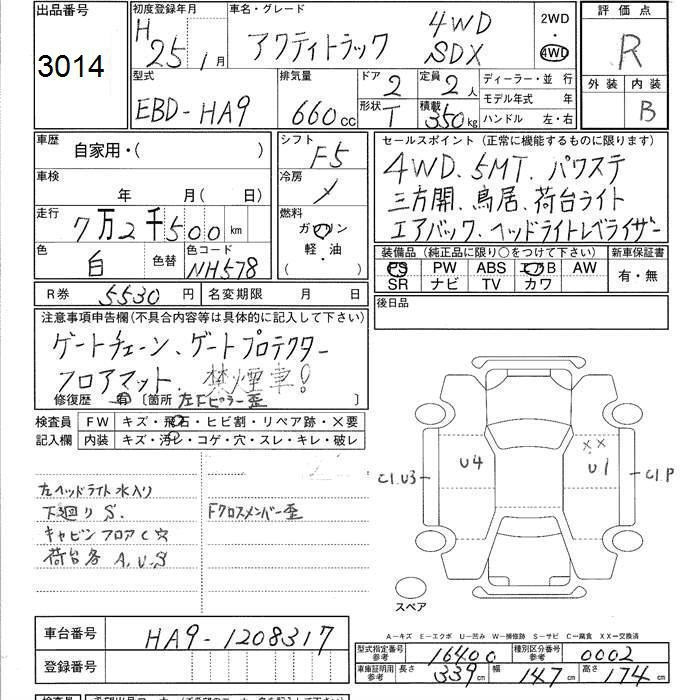 出品番号
3014
初度登録年月
H 25 1月
車名・グレード
アクティトラック 4WD SDX
2WD
・
4WD
評価点
R
外装 内装
B
型式
EBD-HA9
排気量
660cc
ドア 2
形状 T
定員 2人
積載 350kg
ディーラー・並行
モデル年式 年
ハンドル 左・右
車歴
自家用・( )
車検
年 月( 日)
走行
7万2千500km
色
白
色替
色コード
NH578
シフト
F5
冷房
燃料
ガソリン
軽・油
( )
セールスポイント(正常に機能するものに限ります)
4WD、5MT、パワステ
三方開、鳥居、荷台ライト
エアバック、ヘッドライトレベライザー
装備品(純正品に限り○をつけて下さい)
PS PW ABS エアB AW
SR ナビ TV カワ
新車保証書
有・無
後日品
R券 5530円
名変期限 月 日
注意事項申告欄(不具合内容等は具体的に記入して下さい)
ゲートチェーン、ゲートプロテクター
フロアマット、禁煙車!
修復歴 有 〔箇所 左Fピラー歪 〕
検査員
記入欄
FW キズ・飛石・ヒビ割・リペア跡・X要
内装 キズ・汚レ・コゲ・穴・スレ・キレ・破レ
左ヘッドライト水入り
下廻りS.
キャビンフロアC穴
荷台各 A.U.S
Fクロスメンバー歪
C1.U3
U4
××
U1
C1.P
スペア
A−キズ E−エクボ U−凹み W−補修跡 S−サビ C−腐食 XX−交換済
車台番号
HA9-1208317
登録番号
型式指定番号
参考
16400
種別区分番号
参考
0002
車庫証明用
参考
長さ 339cm 幅 147cm 高さ 174cm